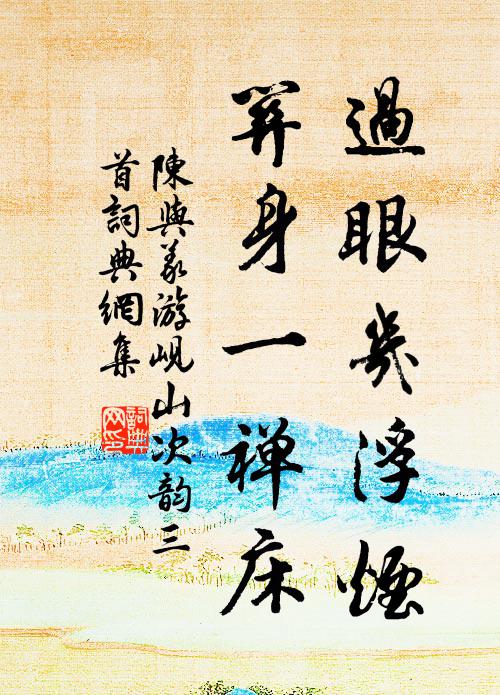 過眼幾浮煙
筭身一禅床
陳與義游峴山次韵三
首詞典網集
詞典
网印